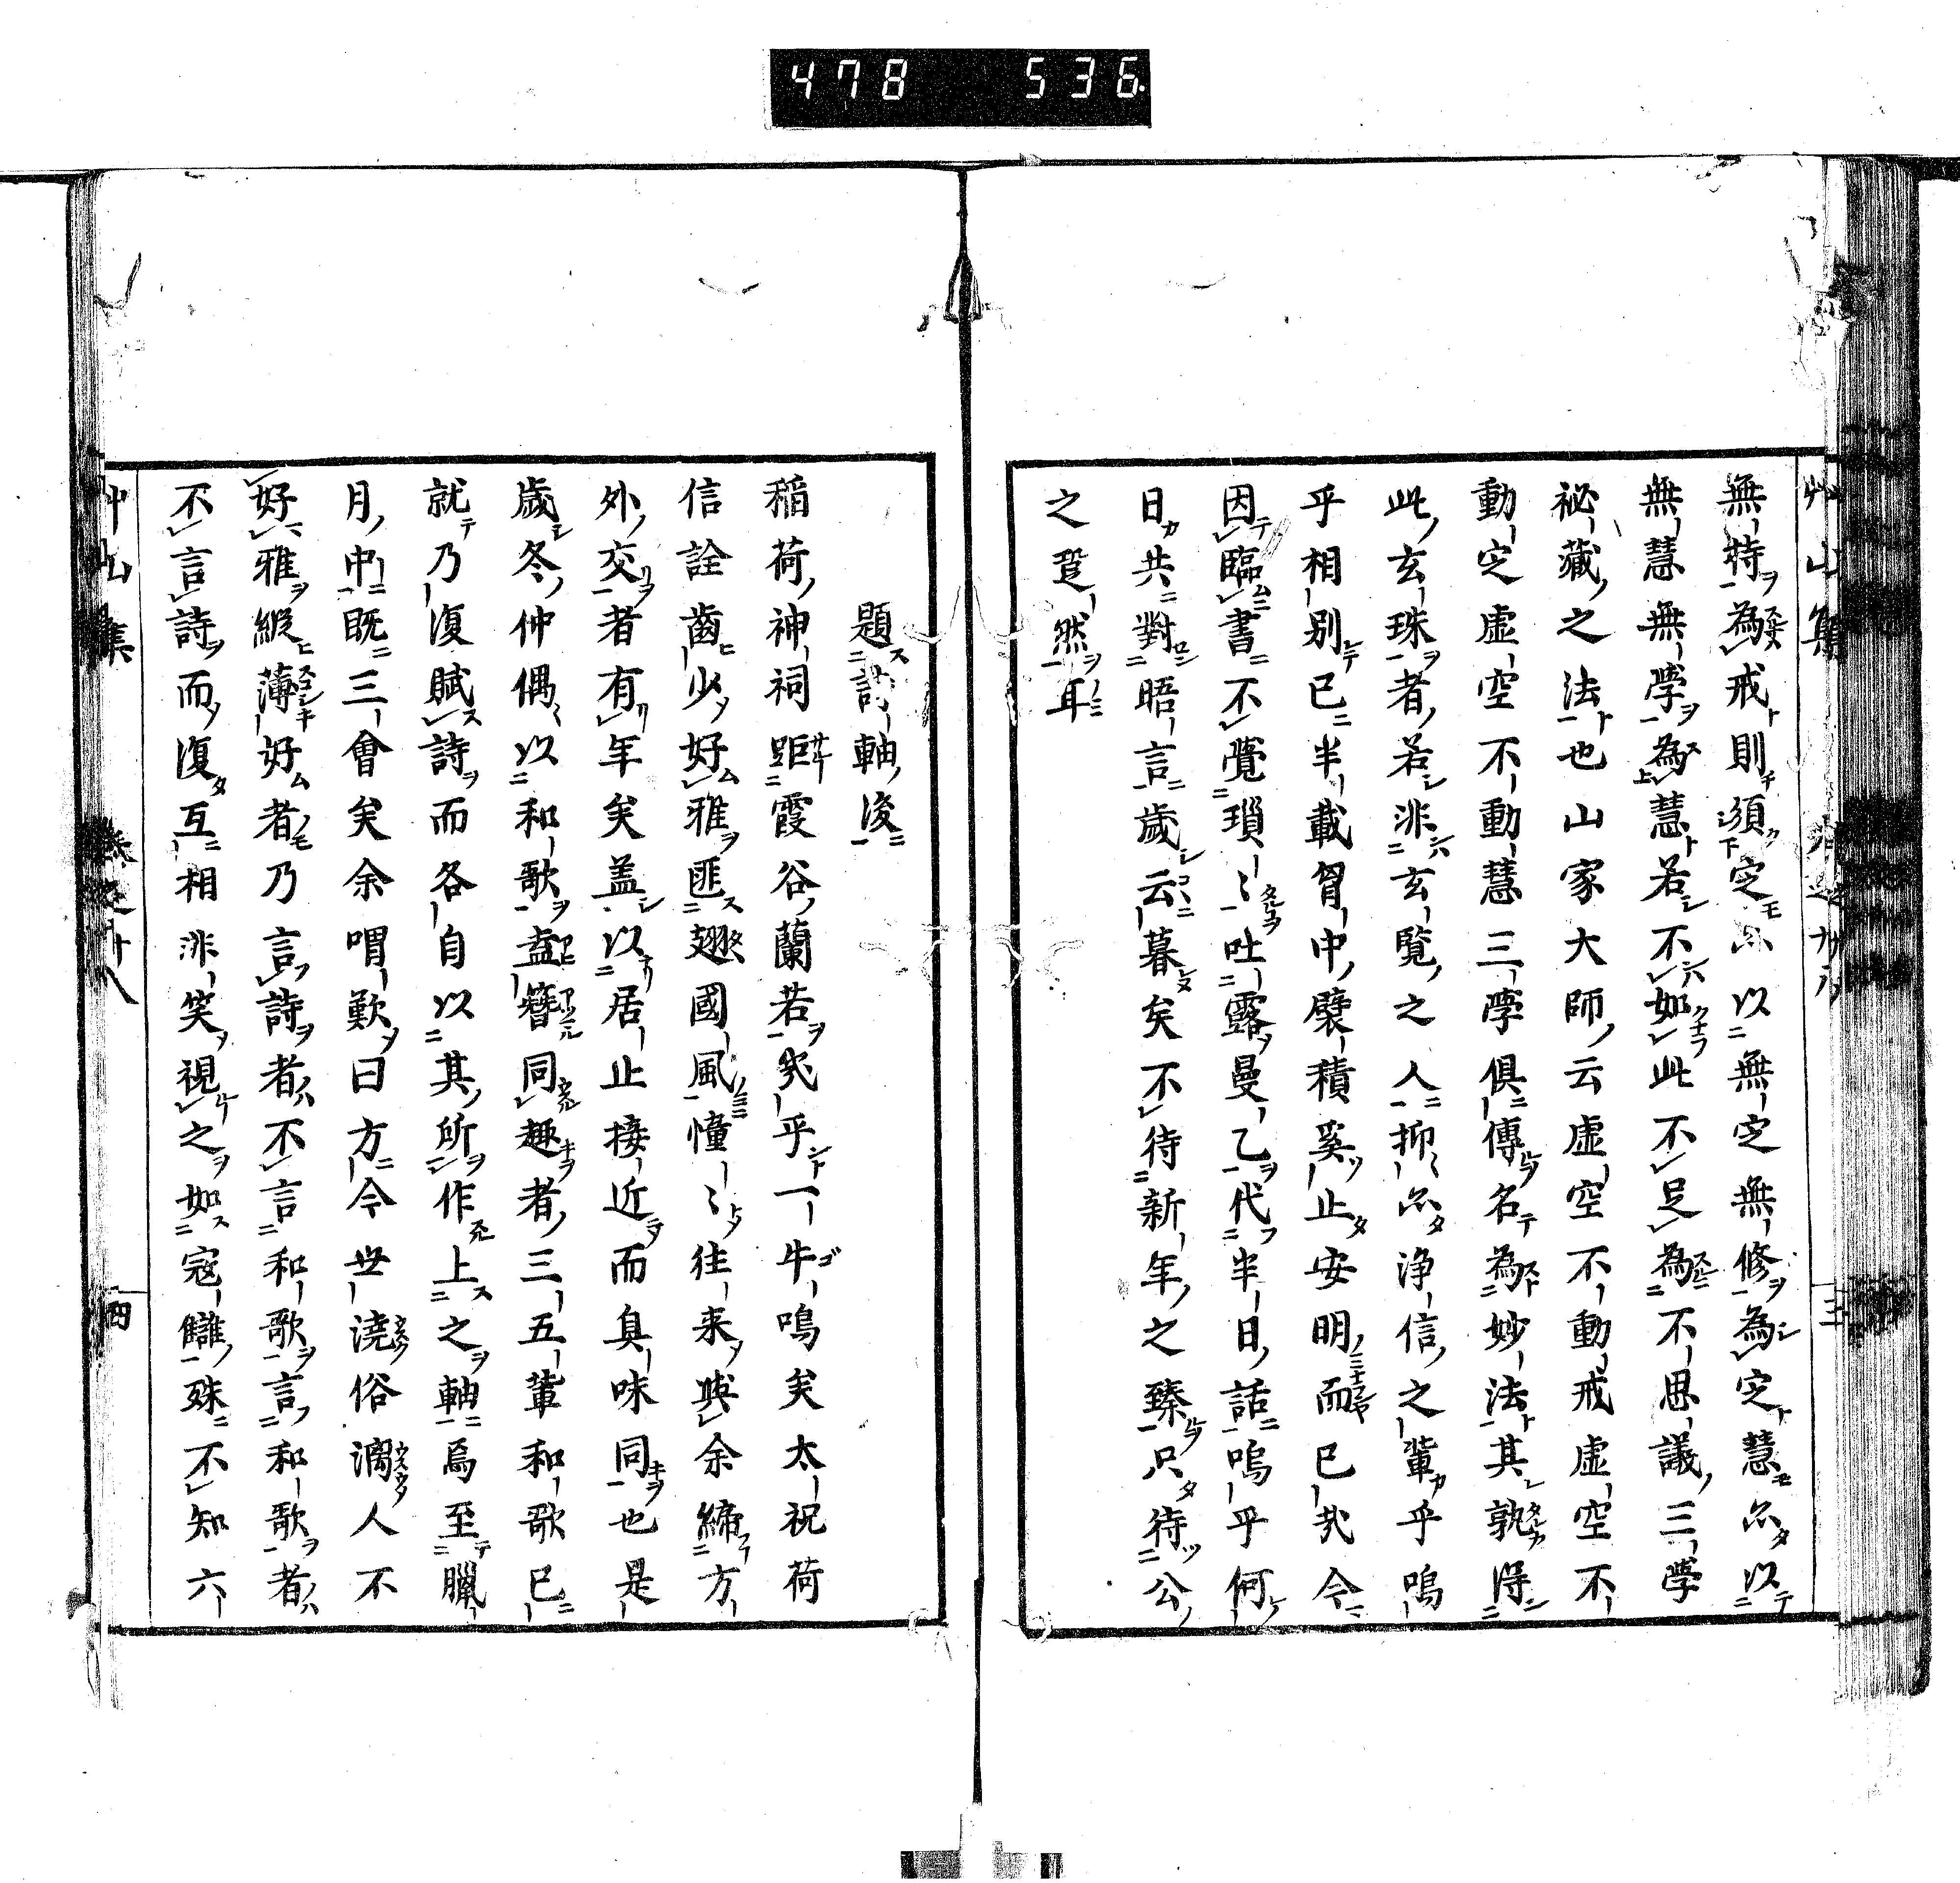 478 536
無持為戒則須定亦以無定無修為定慧亦以
無慧無學為慧若不如此不足為不思議三學
祕藏之法也山家大師云虛空不動戒虛空不
動定虛空不動慧三學俱傳名為妙法其孰得
此玄珠者若非玄覽之人抑亦淨信之輩乎嗚
乎相別已半載胷中襞積奚止安明而已哉今
因臨書不覺瑣〻吐露曼乙代半日話嗚乎何
日共對晤言歲云暮矣不待新年之臻只待公
之跫然耳
題詩軸後
稲荷神祠距霞谷蘭若幾乎一牛鳴矣太祝荷
信詮齒少好雅匪翅國風憧〻往来與余締方
外交者有年矣盖以居止接近而臭味同也是
歲冬仲偶以和歌盍簪同趣者三五輩和歌已
就乃復賦詩而各自以其所作上之軸焉至臘
月中既三會矣余喟歎曰方今世澆俗漓人不
好雅縦薄好者乃言詩者不言和歌言和歌者
不言詩而復互相非笑視之如寇讎殊不知六
艸山集 卷之十八 三
艸山集 卷之十八 四